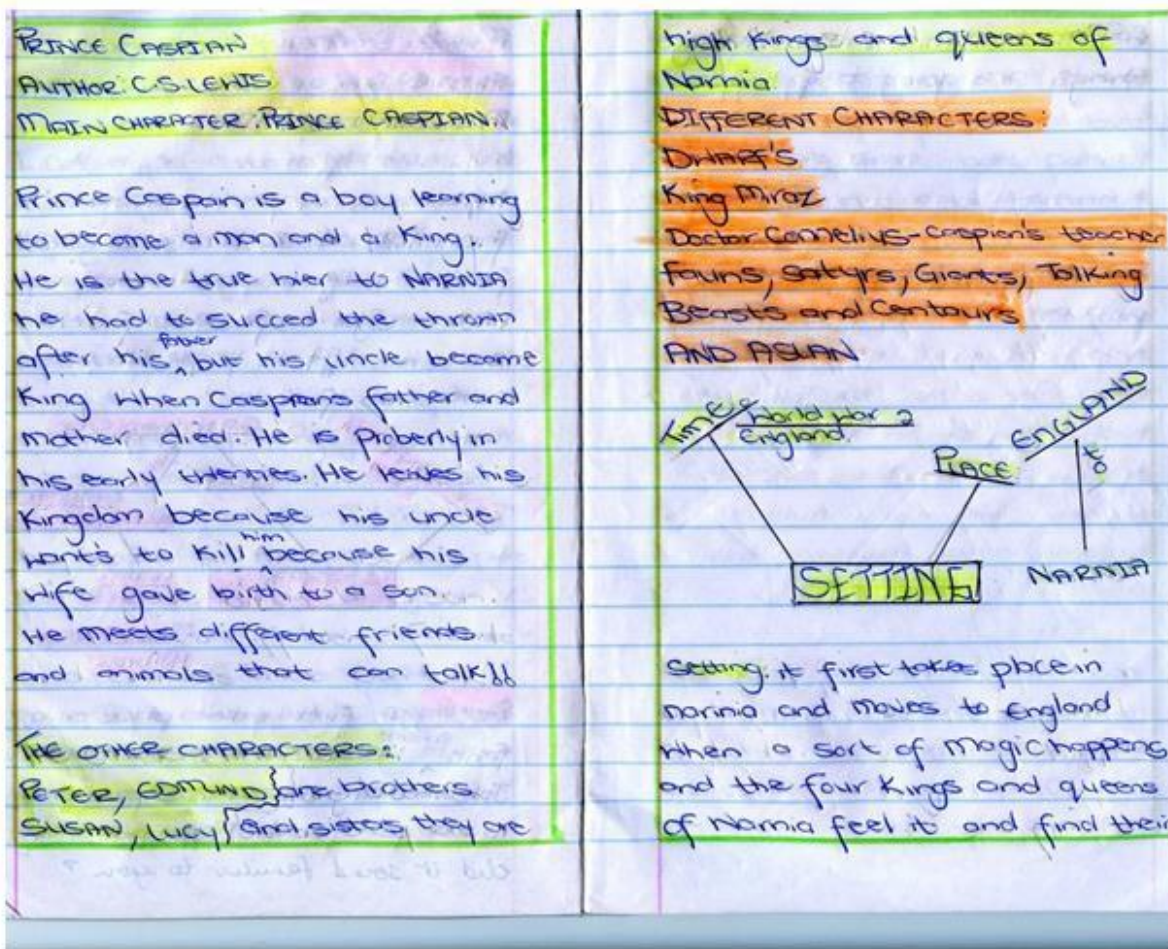 PRINCE CASPIAN
AUTHOR: C.S. LEWIS
MAIN CHARACTER: PRINCE CASPIAN.
Prince Caspain is a boy learning
to become a man and a King.
He is the true hier to NARNIA
he had to succed the thrown
after his father, but his uncle become
King when Caspians father and
mother died. He is proberly in
his early twenties. He leaves his
Kingdom because his uncle
want's to Kill him because his
wife gave birth to a son.
He meets different friends
and animals that can talk!!
THE OTHER CHARACTERS:
PETER, EDMUND } are brothers
SUSAN, LUCY } and sistas, they are
high Kings and queens of
Narnia.
DIFFERENT CHARACTERS:
DWARF'S
King Miraz
Doctor Cornelius-Caspian's teacher
Fauns, Satyrs, Giants, Talking
Beasts and Centours
AND ASLAN
TIME
World War 2
England.
PLACE
ENGLAND
to
NARNIA
SETTING
Setting: it first takes place in
narinia and moves to England
when a sort of magic happens
and the four Kings and queens
of Narnia feel it and find their